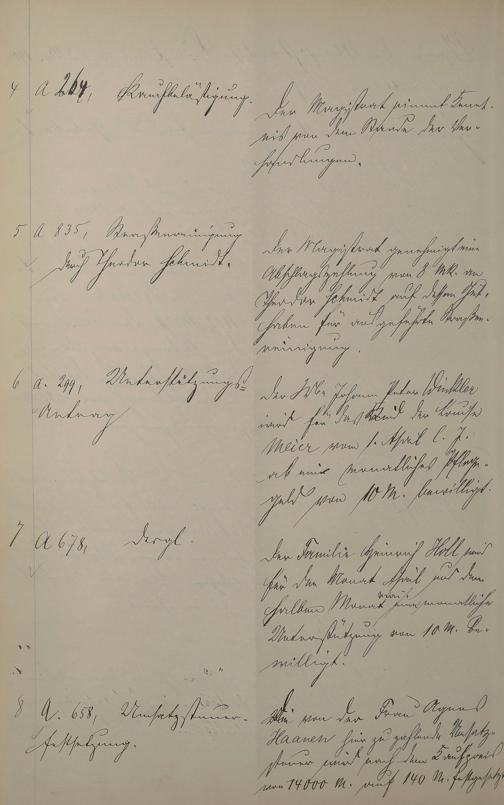 4 A 264, Rauchbelästigung.
Der Magistrat nimmt Kennt-
nis von dem Stande der Ver-
handlungen.
5 A 835, Straßenreinigung
durch Theodor Schmidt.
Der Magistrat genehmigt eine
Abschlagszahlung von 8 Mk. an
Theodor Schmidt auf dessen Gut-
haben für ausgeführte Straßen-
reinigung.
6 A. 299, Unterstützungs-
Antrag
Der Johann Peter Winkler
wird für das Kind der Louise
Meier vom 1. April l. J.
ab ein monatliches Pflege-
geld von 10 M. bewilligt.
7 A 678, dergl.
Der Familie Heinrich Holl wird
für den Monat April und den
halben Monat eine monatliche
Unterstützung von 10 M. be-
willigt.
8 A. 658, Umsatzsteuer-
festsetzung.
Die von der Frau Agnes
Haanen hier zu zahlende Umsatz-
steuer wird nach dem Kaufpreis
von 14000 M. auf 140 M. festgesetzt